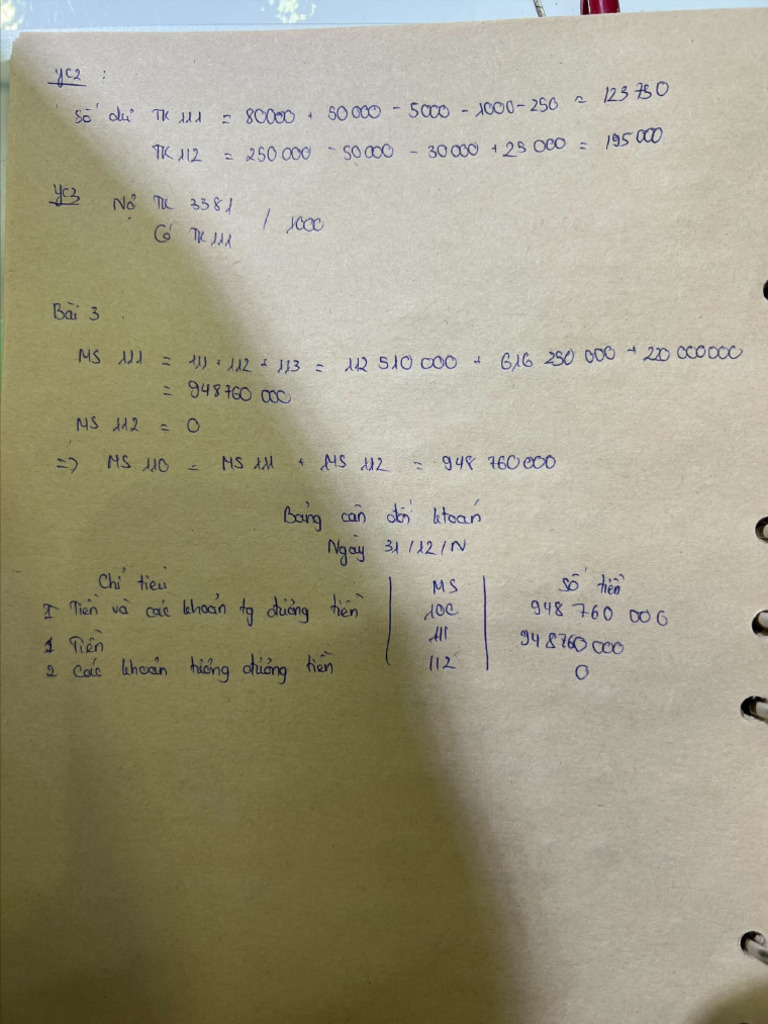 yc2 :
Số dư TK 111 = 80000 + 50000 - 5000 - 1000 - 250 = 123750
TK 112 = 250 000 - 50000 - 30000 + 25 000 = 195 000
yc3 Nợ TK 3381
Có TK 111 / 1000
Bài 3
MS 111 = 111 + 112 + 113 = 112 510 000 + 616 250 000 + 220 000000
= 948760 000
MS 112 = 0
=> MS 110 = MS 111 + MS 112 = 948 760000
Bảng cân đối ktoán
Ngày 31/12/N
Chỉ tiêu MS Số tiền
I Tiền và các khoản tg đương tiền 100 948 760 000
1 Tiền 111 948760 000
2 Các khoản tương đương tiền 112 0